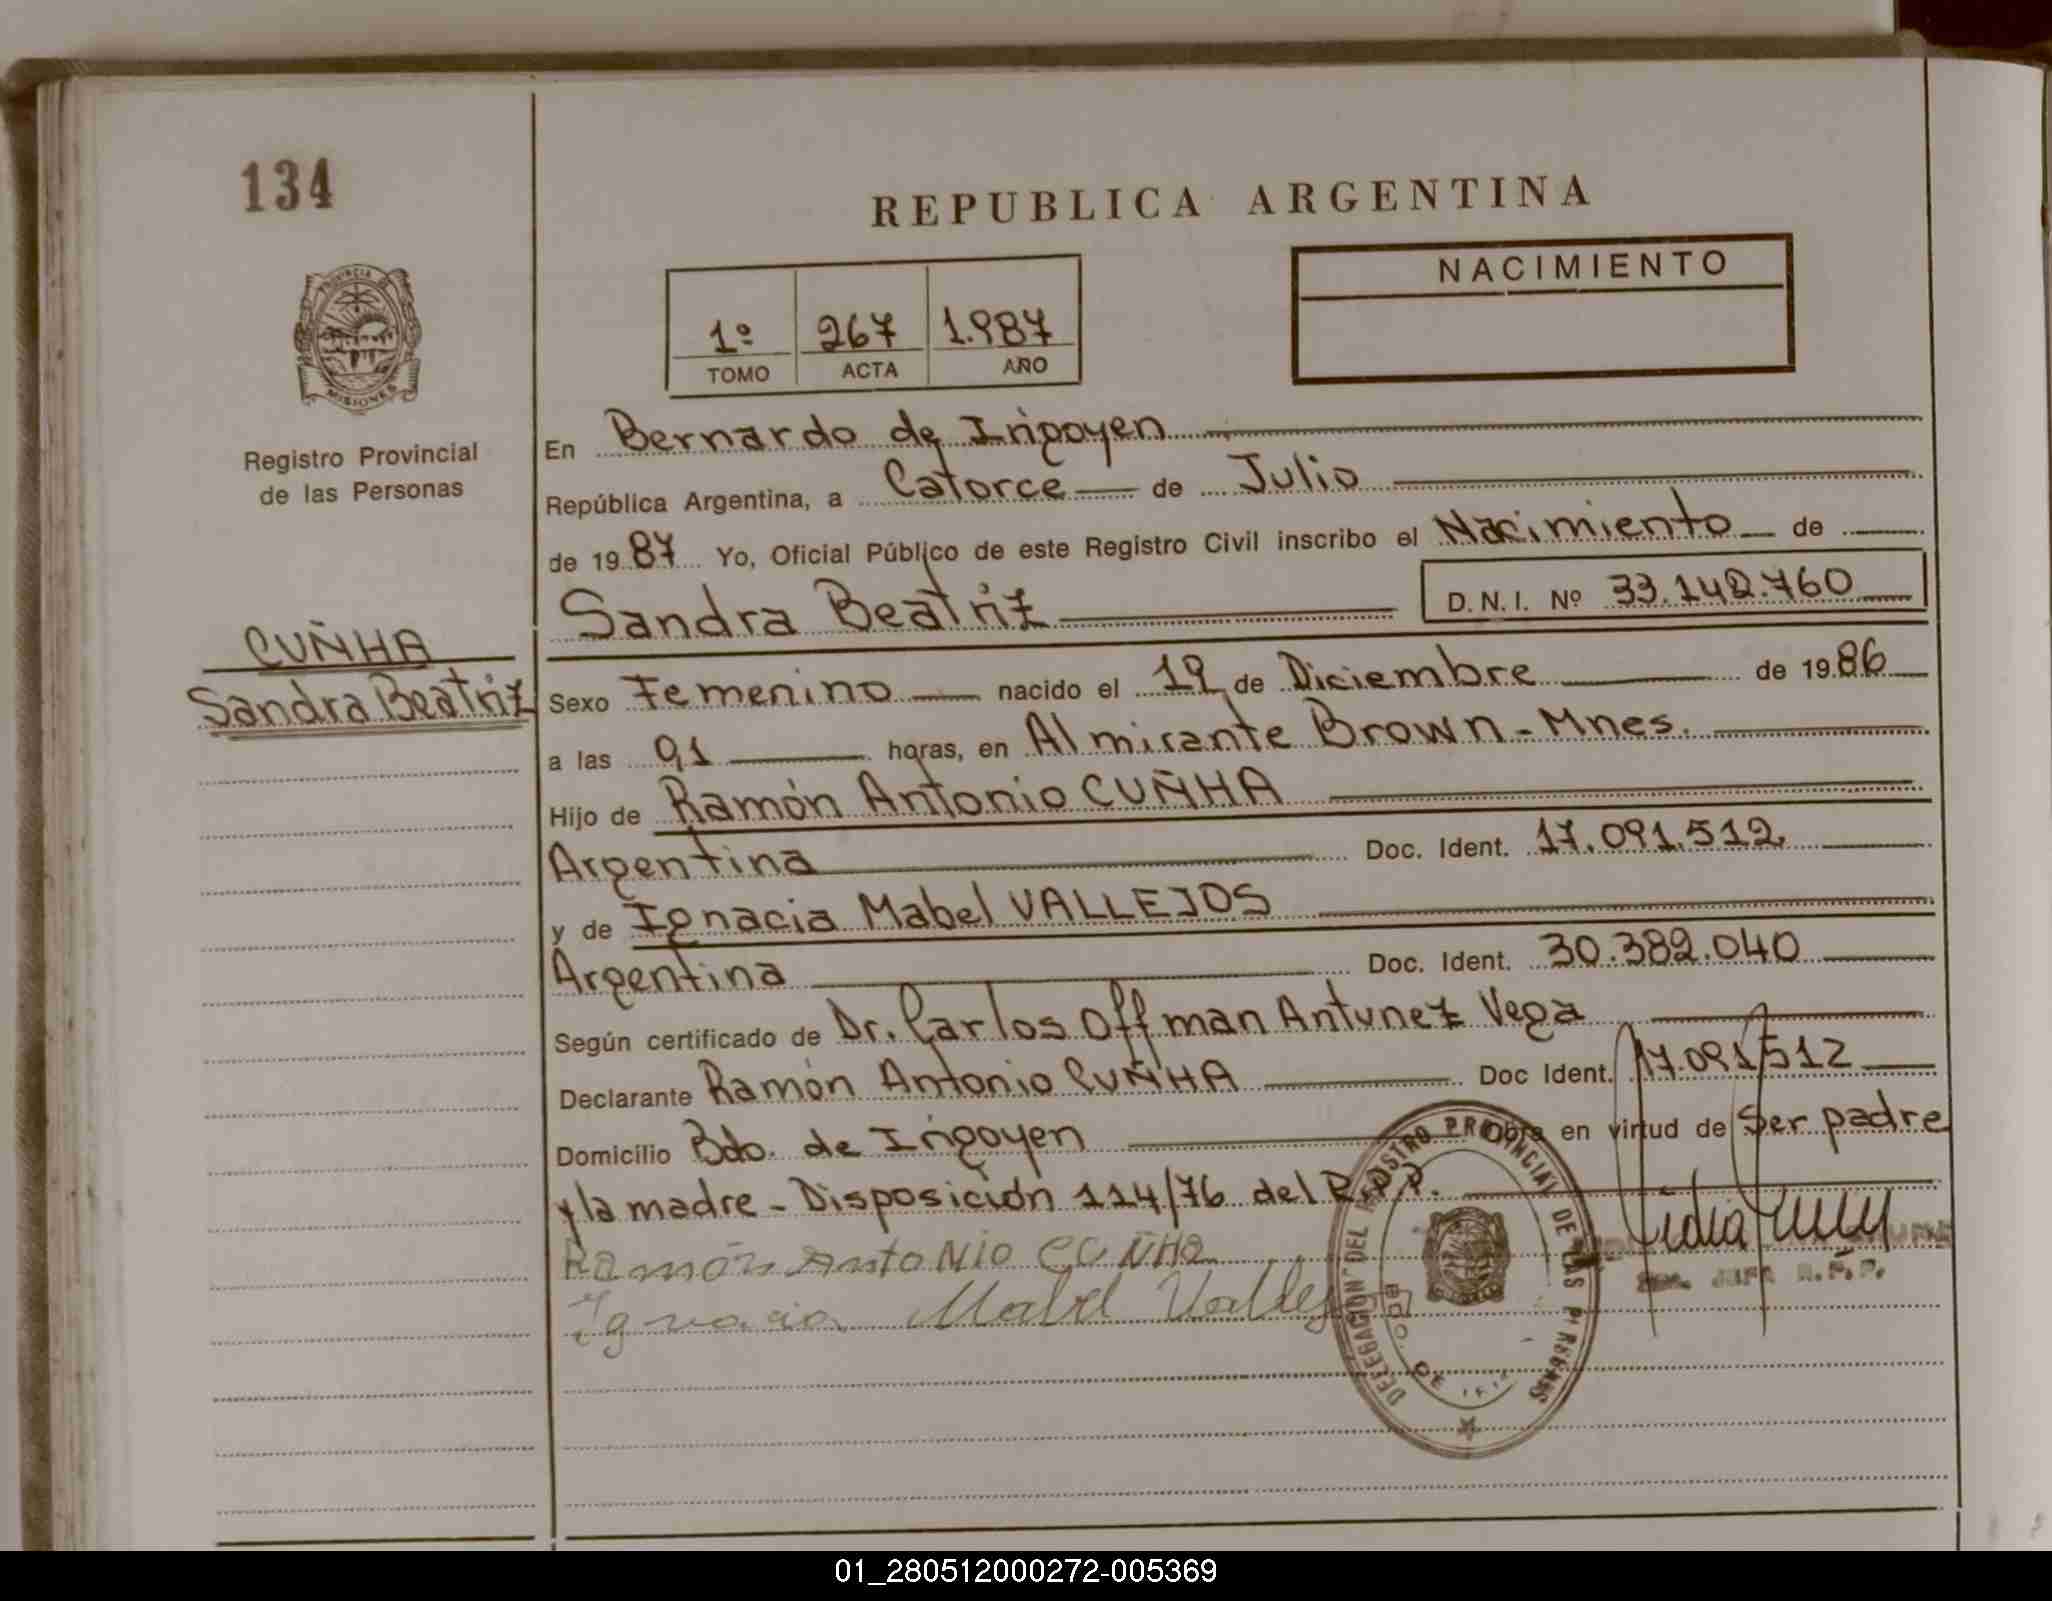 134
REPUBLICA ARGENTINA
NACIMIENTO
1º 267 1.987
TOMO ACTA AÑO
PROVINCIA DE
MISIONES
Registro Provincial
de las Personas
En Bernardo de Irigoyen
República Argentina, a Catorce de Julio
de 19 87 Yo, Oficial Público de este Registro Civil inscribo el Nacimiento de
Sandra Beatriz D.N.I. Nº 33.142.760
CUÑHA
Sandra Beatriz
Sexo Femenino nacido el 12 de Diciembre de 19 86
a las 01 horas, en Almirante Brown - Mnes.
Hijo de Ramón Antonio CUÑHA
Argentina Doc. Ident. 17.091.512
y de Ignacia Mabel VALLEJOS
Argentina Doc. Ident. 30.382.040
Según certificado de Dr. Carlos Offman Antunez Vega
Declarante Ramón Antonio CUÑHA Doc Ident. 17.091512
Domicilio Bdo. de Irigoyen Obra en virtud de Ser padre
y la madre - Disposición 114/76 del R.P.P.
Ramón Antonio CUÑHA
Ignacia Mabel Vallejos
DELEGACION DEL REGISTRO PROVINCIAL DE LAS PERSONAS
BDO. DE
JEFA R.P.P.
01_280512000272-005369